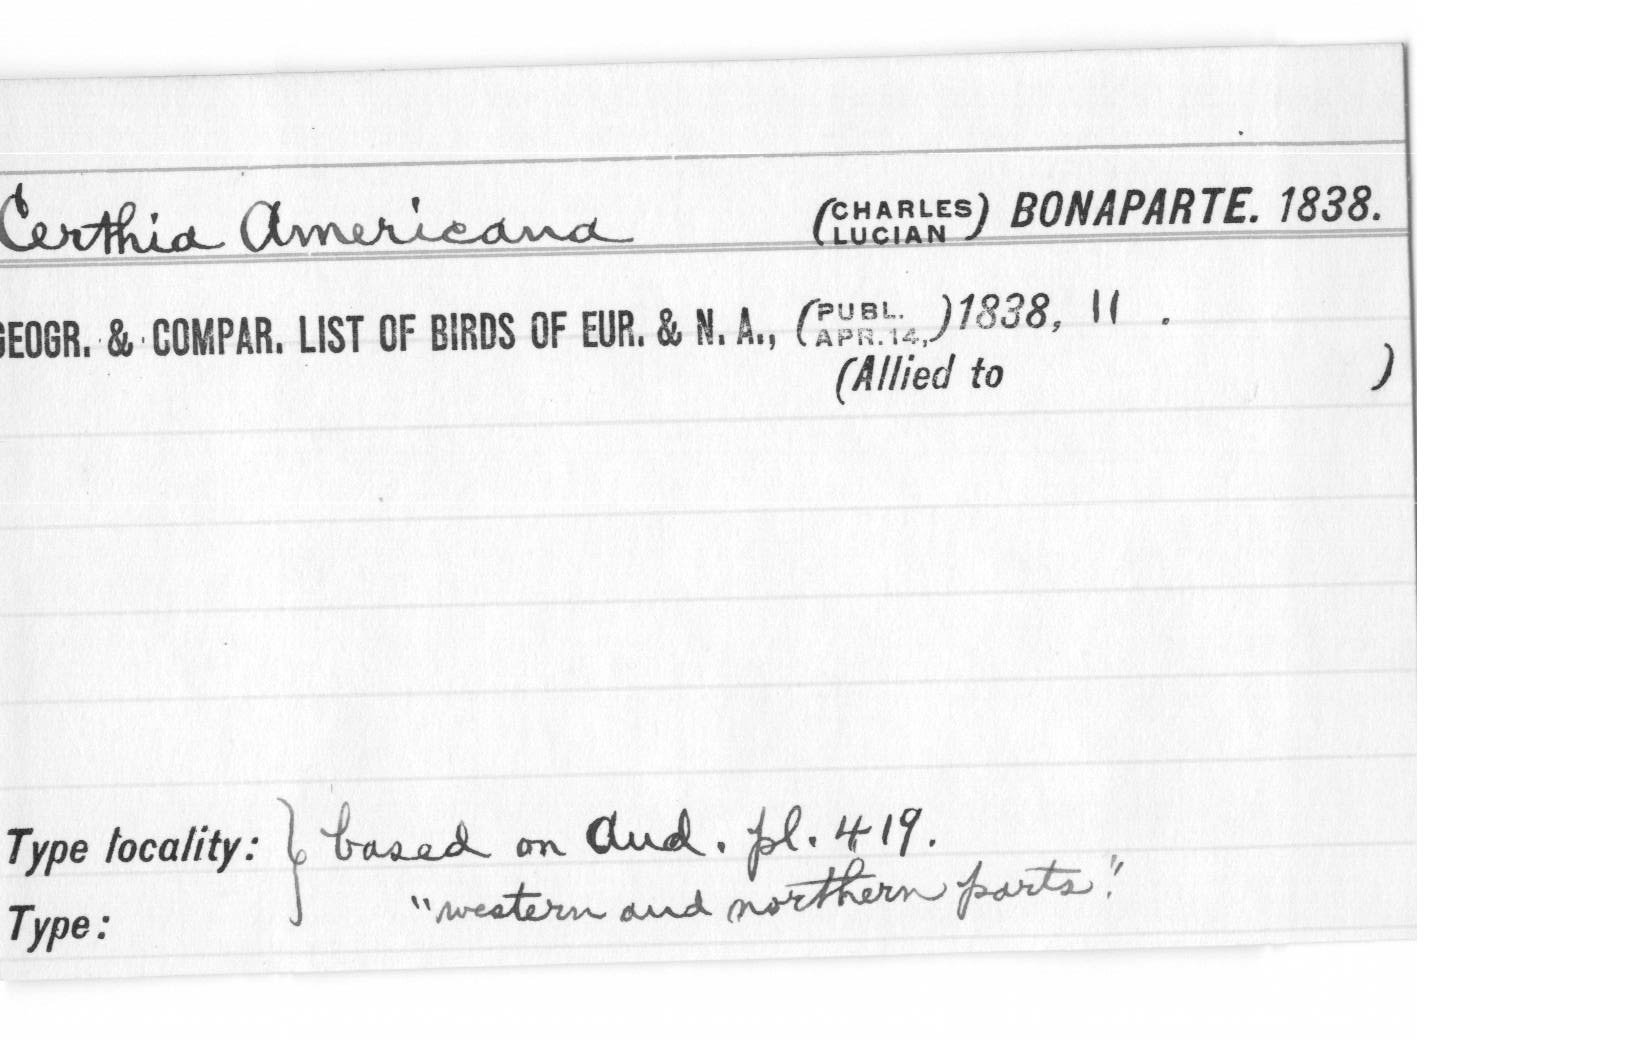 Certhia Americana (CHARLES LUCIAN) BONAPARTE. 1838.
GEOGR. & COMPAR. LIST OF BIRDS OF EUR. & N. A., (PUBL. APR. 14,) 1838, 11 .
(Allied to )
Type locality: } based on Aud. pl. 419.
Type: "western and northern parts".